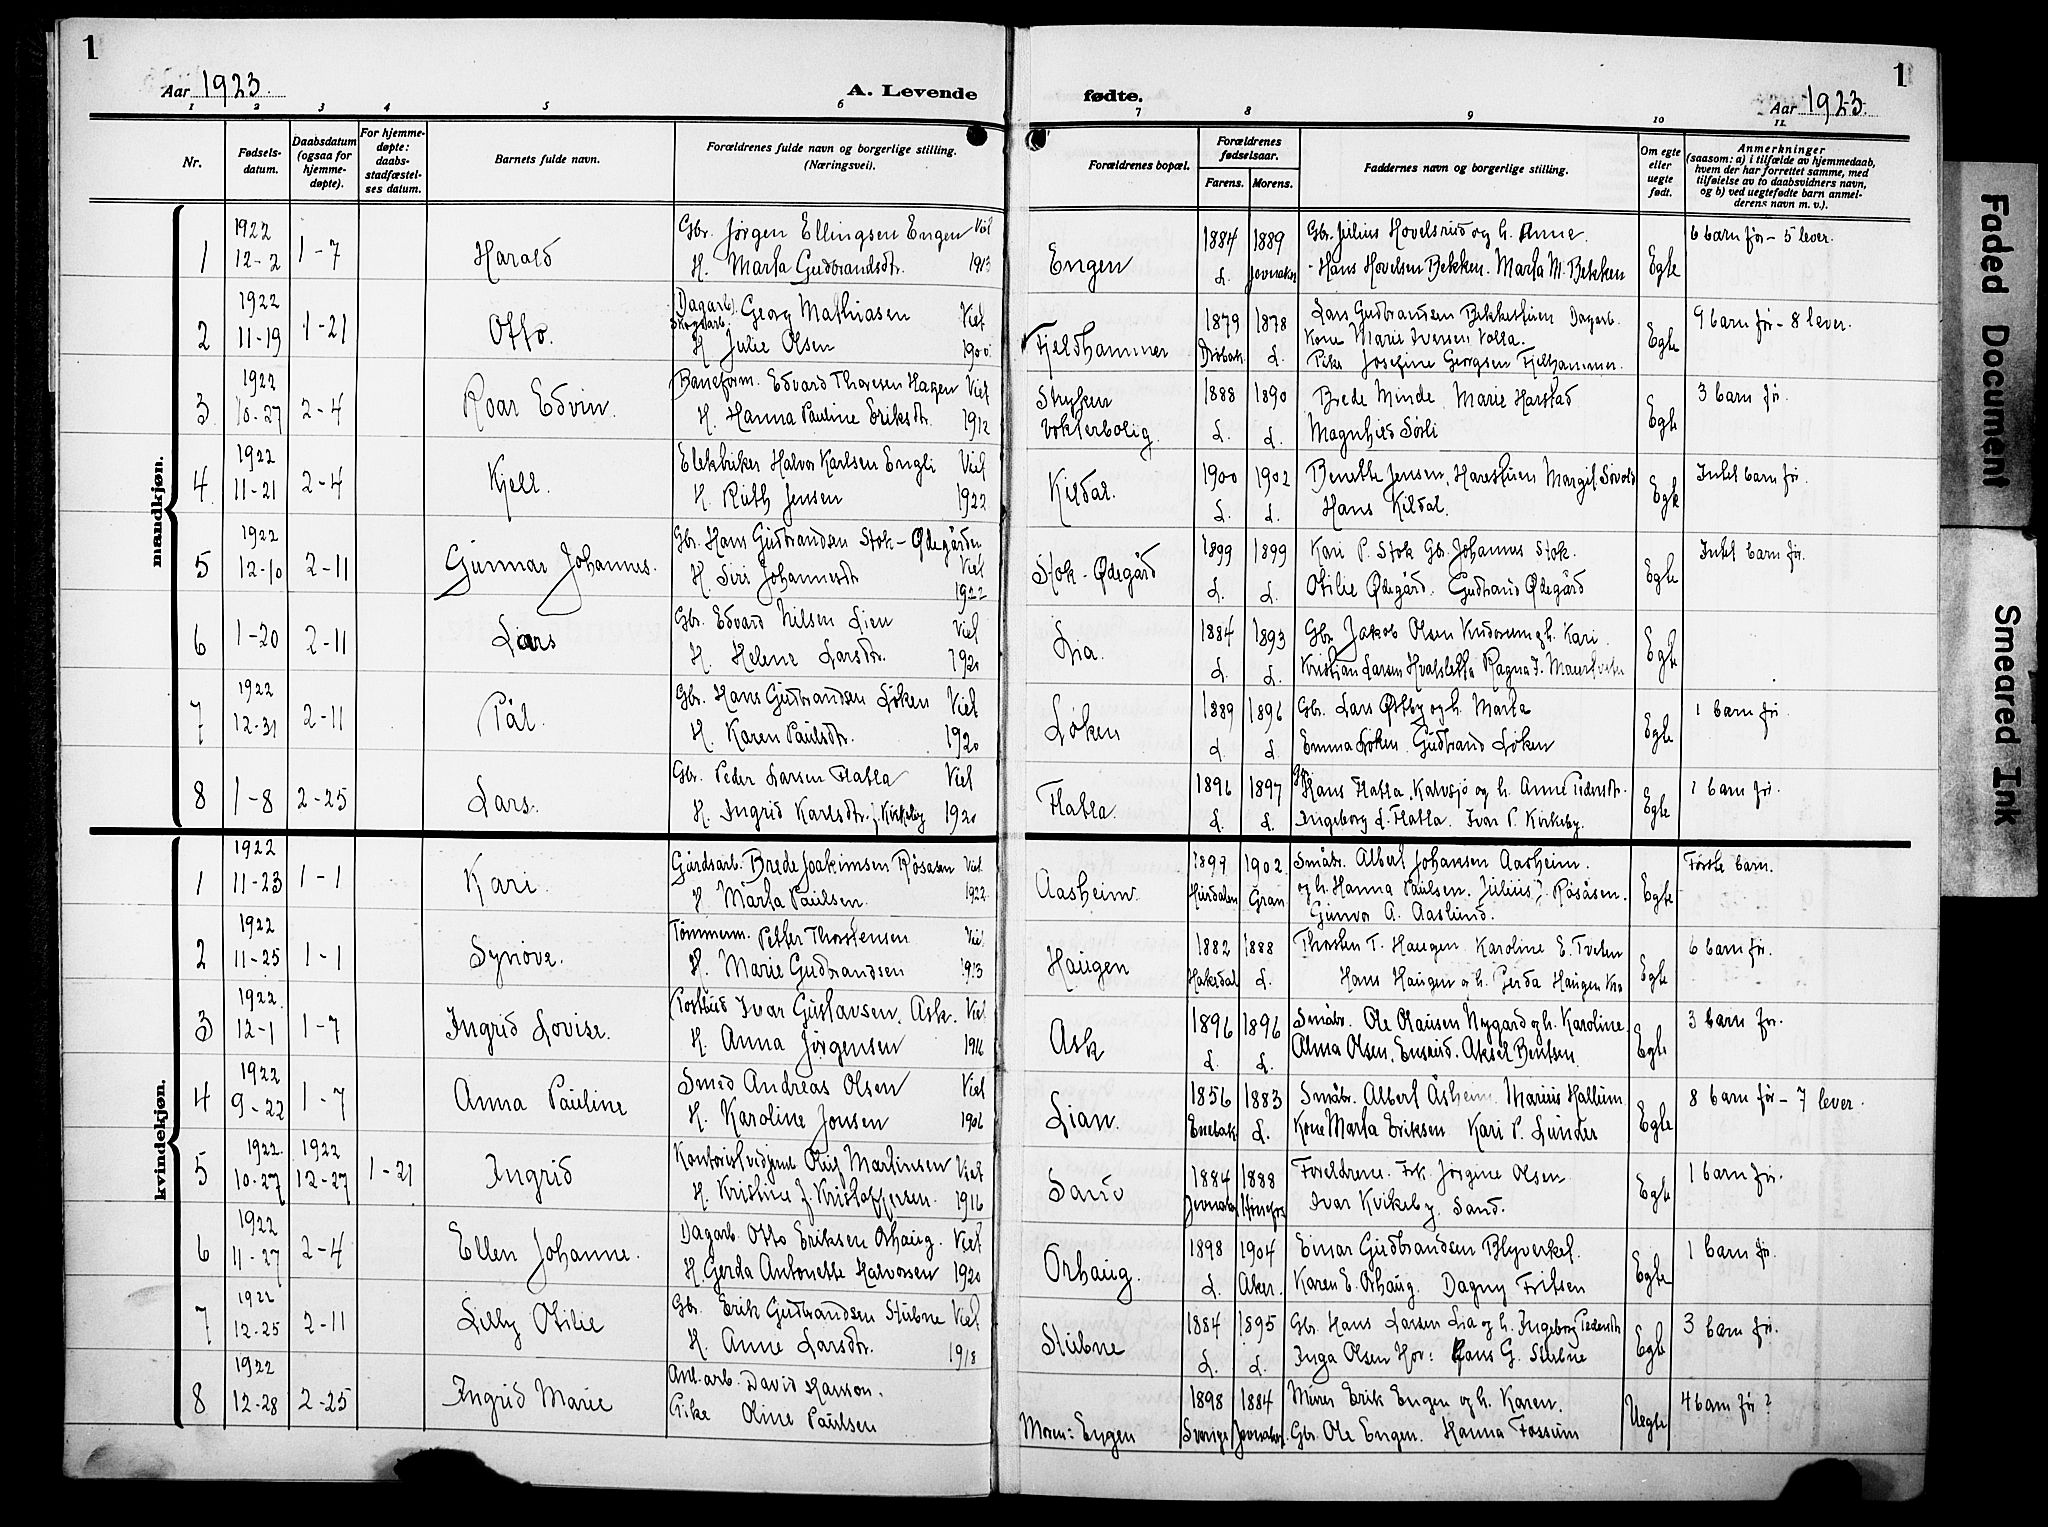 1
Aar 1923.
A. Levende
1 2 3 4 5 6
Nr.
Fødsels-
datum.
Daabsdatum
(ogsaa for
hjemme-
døpte).
For hjemme-
døpte:
daabs-
stadfæstel-
ses datum.
Barnets fulde navn.
Forældrenes fulde navn og borgerlige stilling.
(Næringsvei).
mandkjøn.
1 1922 12-2 1-7 Harald
Gbr. Jørgen Ellingsen Engen Viet
H. Marta Gudbrandsdtr. 1913
2 1922 11-19 1-21 Otto.
Dagarb. Skogsarb. Georg Mathiasen Viet
H. Julie Olsen 1900
3 1922 10-27 2-4 Roar Edvin.
Baneform. Edvard Thoresen Hagen Viet
H. Hanna Pauline Eriksdtr. 1912
4 1922 11-21 2-4 Kjell.
Elektriker Halvor Karlsen Engli Viet
H. Ruth Jensen 1922
5 1922 12-10 2-11 Gunnar Johannes.
Gbr. Hans Gudbrandsen Stok-Ødegården
H. Siri Johannesdtr Viet
1922
6 1-20 2-11 Lars
Gbr. Edvard Nilsen Lien Viet
H. Helene Larsdtr. 1920
7 1922 12-31 2-11 Pål.
Gbr. Hans Gudbrandsen Løken Viet
H. Karen Paulsdtr. 1920
8 1-8 2-25 Lars.
Gbr. Peder Larsen Flatla Viet
H. Ingrid Karlsdtr. f. Kirkeby 1920
kvindekjøn.
1 1922 11-23 1-1 Kari.
Gårdsarb. Brede Joakimsen Råsåsen Viet
H. Marta Paulsen. 1922
2 1922 11-25 1-1 Synøve.
Tømmerm. Petter Thorstensen Viet
H. Marie Gudbrandsen 1913
3 1922 12-1 1-7 Ingrid Lovise.
Postbud Ivar Gustavsen. Ask. Viet
H. Anna Jørgensen 1916
4 1922 9-22 1-7 Anna Pauline
Smed Andreas Olsen Viet
H. Karoline Jonsen 1906
5 1922 10-27 1922 12-27 1-21 Ingrid
Martinsen Viet
H. Kristine J. Kristoffersen. 1916
6 1922 11-27 2-4 Ellen Johanne.
Dagarb. Otto Eriksen Orhaug. Viet
H. Gerda Antonette Halvorsen 1920
7 1922 12-25 2-11 Lilly Otilie
Gbr. Erik Gudbrandsen Stubne Viet
H. Anne Larsdtr. 1918
8 1922 12-28 2-25 Ingrid Marie
Anl. arb. David Hanson.
Pike Oline Paulsen
1
Aar 1923.
fødte.
7 8 9 10 11.
Forældrenes bopæl.
Forældrenes
fødselsaar.
Farens. Morens.
Faddernes navn og borgerlige stilling.
Om egte
eller
uegte
født.
Anmerkninger
(saasom: a) i tilfælde av hjemmedaab,
hvem der har forrettet samme, med
tilføielse av to daabsvidners navn,
og b) ved uegtefødte barn anmel-
derens navn m. v.).
Engen 1884 L. 1889 Jevnaker
Gbr. Julius Hovelsrud og h. Anne.
Hans Hovelsen Bekken. Marta M. Bekken
Egte 6 barn før - 5 lever.
Fjeldhammer 1879 Drøbak 1878 L.
Lars Gudbrandsen Bikkestuen Dagarb.
Kone Marie Iversen Volla.
Pike Josefine Georgsen Fjelhammer.
Egte 9 barn før - 8 lever.
Stryken
vokterbolig. 1888 L. 1890 L.
Brede Minde. Marie Harstad
Magnhild Sørli
Egte 3 barn før.
Kildal. 1900 L. 1902 L.
Benette Jensen, Harestuen Margit
Hans Kildal.
Egte Intet barn før.
Stok-Ødegård 1899 L. 1899 L.
Kari P. Stok Gb. Johannes Stok.
Otilie Ødegård. Gudbrand Ødegård
Egte Intet barn før.
Lia. 1884 L. 1893 L.
Gbr. Jakob Olsen og h. Kari.
Kristian Larsen Hvalsletta Ragna J.
Egte
Løken 1889 L. 1896 L.
Gbr. Lars Østby og h. Marta
Emma Løken. Gudbrand Løken
Egte 1 barn før.
Flatla. 1896 L. 1897 L.
Gbr. Hans Flatla, Kalvsjø og h. Anne Pedersdtr.
Ingeborg L. Flatla. Ivar P. Kirkeby.
Egte 1 barn før.
Aasheim. 1899 Hurdalen 1902 Gran
Småbr. Albert Johansen Aasheim.
og h. Hanna Paulsen. Julius J. Råsåsen.
Gunvor A. Aaslund.
Egte Første barn.
Haugen 1882 Hakedal 1888 L.
Thorsten T. Haugen Karoline E. Tveten
Hans Haugen og h. Gerda Haugen
Egte 6 barn før.
Ask 1896 L. 1896 L.
Småbr. Ole Olausen Nygard og h. Karoline.
Alma Olsen, Ensrud. Aksel Bentsen
Egte 3 barn før.
Lian. 1856 Enebak 1883 L.
Småbr. Albert Åsheim. Marius Hallum
Kone Marta Eriksen Kari P. Lunder
Egte 8 barn før - 7 lever.
Sand 1884 Jevnaker 1888 Hønefos
Foreldrene. Frk. Jørgine Olsen
Ivar Kvikeby, Sand.
Egte 1 barn før.
Orhaug. 1898 L. 1904 Aker.
Einar Gudbrandsen Blyverket.
Karen E. Orhaug. Dagny Fritsen
Egte 1 barn før.
Stubne 1884 L. 1895 L.
Gbr. Hans Larsen Lia og h. Ingeborg Pedersdtr
Inga Olsen Hov: Hans G. Stubne
Egte 3 barn før.
Moren: Engen 1898 Sverige 1884 Jevnaker.
Murer Erik Engen og h. Karen.
Gbr. Ole Engen. Hanna Fossum
Uegte 4 barn før?
Faded Document
Smeared Ink